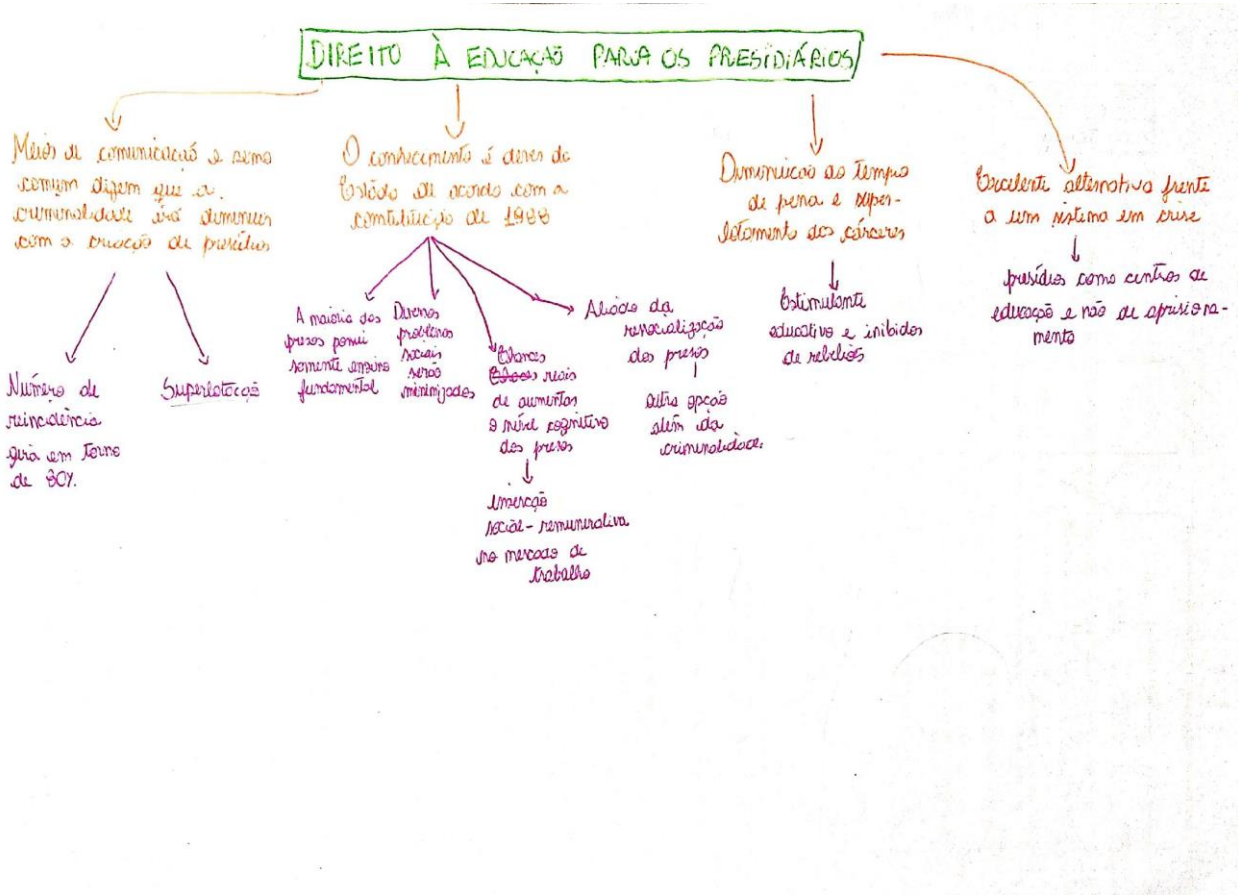 DIREITO À EDUCAÇÃO PARA OS PRESIDIÁRIOS
Meios de comunicação e senso
comum dizem que a
criminalidade irá diminuir
com a criação de presídios
Número de
reincidência
gira em torno
de 80%.
Superlotação
O conhecimento é dever do
Estado de acordo com a
constituição de 1988
A maioria dos
presos possui
somente ensino
fundamental
Diversos
problemas
sociais
serão
minimizados
Chances
reais
de aumentar
o nível cognitivo
dos presos
inserção
social-remunerativa
no mercado de
trabalho
Aliado da
ressocialização
dos presos
outra opção
além da
criminalidade
Diminuição do tempo
de pena e super-
lotamento dos cárceres
Estimulante
educativo e inibidor
de rebeliões
Excelente alternativa frente
a um sistema em crise
presídios como centros de
educação e não de aprisiona-
mento